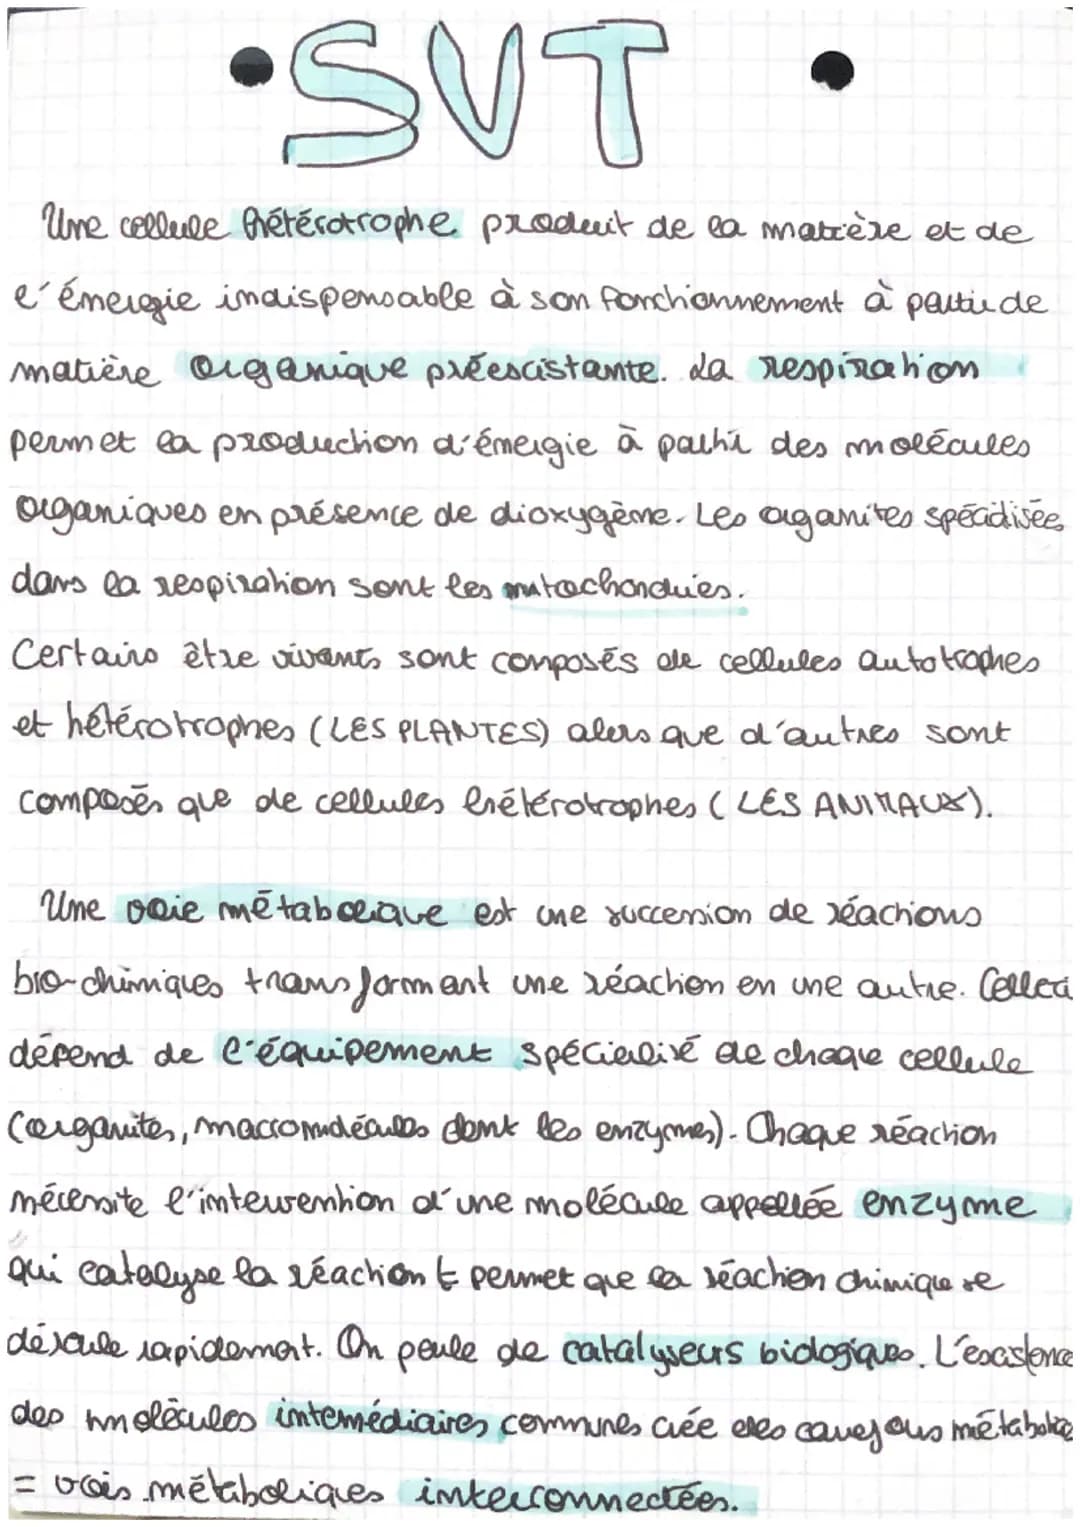 SVT
Une cellule hétérotrophe produit de la matière et de
l'énergie indispensable à son fonctionnement à partir de
matière organique préexistante. La respiration
permet la production d'énergie à partir des molécules
organiques en présence de dioxygène. Les organites spécialisées
dans la respiration sont les mitochondries.
Certains être vivants sont composés de cellules autotrophes
et hétérotrophes (LES PLANTES) alors que d'autres sont
composés que de cellules hétérotrophes (LES ANIMAUX).
Une voie métabolique est une succession de réactions
bio-chimiques transformant une réaction en une autre. Celleci
dépend de l'équipement spécialisé de chaque cellule
(organites, macromolécules dont les enzymes). Chaque réaction
nécessite l'intervention d'une molécule appellée enzyme
qui catalyse la réaction & permet que la réaction chimique se
déroule rapidement. On parle de catalyseurs biologiques. L'existence
des molécules intermédiaires communes crée des métabolic
= vois métaboliques interconnectées.